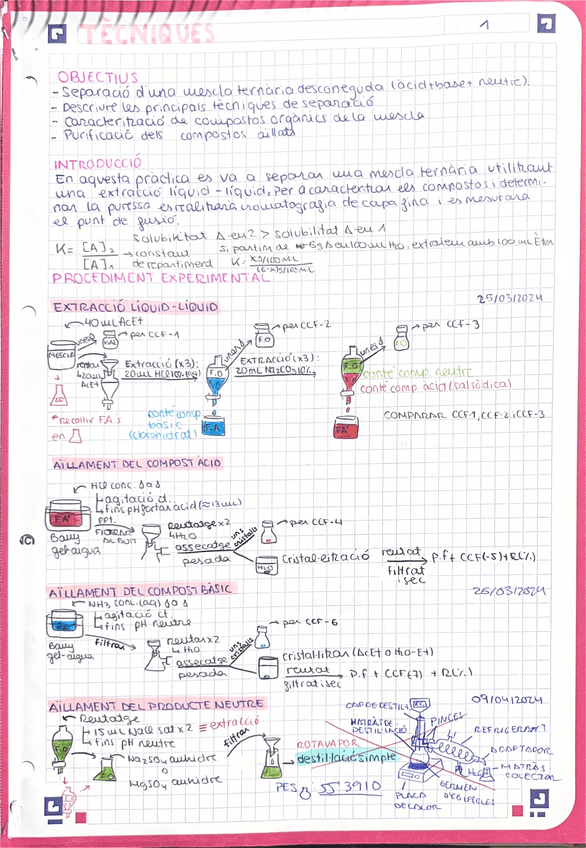 TÈCNIQUES
1
OBJECTIUS
- Separació d'una mescla ternària desconeguda (àcid+base+neutre).
- Descriure les principals tècniques de separació
- Caracterització de compostos orgànics de la mescla
- Purificació dels compostos aïllats
INTRODUCCIÓ
En aquesta pràctica es va a separar una mescla ternària utilitzant
una extracció líquid-líquid. Per a caracteritzar els compostos i determi-
nar la puresa es realitzarà cromatografia de capa fina i es mesurarà
el punt de fusió.
solubilitat A en 2 > solubilitat A en 1
K = [A]2 / [A]1 → constant de repartiment
si partim de 6g A en 100mL H2O, extraiem amb 100 mL Èter
K = x g/100mL / (6-x)g/100mL
PROCEDIMENT EXPERIMENTAL
EXTRACCIÓ LÍQUID-LÍQUID
25/03/2024
40 mL AcEt
MESCLA
VIAL
per CCF-1
restar
AcEt
Extracció (x3):
20mL HCl
F.O
per CCF-2
EXTRACCIÓ (x3):
20mL Na2CO3 10%
F.O
per CCF-3
conté comp. neutre
conté comp àcid (sal sòdica)
*recollir F.A.s
en
conté comp
bàsic
(clorohidrat)
F.A
F.A'
COMPARAR CCF-1, CCF-2 i CCF-3
AÏLLAMENT DEL COMPOST ÀCID
HCl conc. g a g
agitació ct.
fins pH fortament àcid (≈13mL)
ppt.
F.A'
Bany
gel-aigua
rentatge x2
4 H2O
assecatge
pesada
uns cristalls
per CCF-4
H2O
Cristal·lització
rentat
filtrat
i sec
p.f + CCF(-5) + R(%)
AÏLLAMENT DEL COMPOST BÀSIC
26/03/2024
NH3 conc. (aq) g a g
agitació ct.
fins pH neutre
F.A
Bany
gel-aigua
filtrar
rentar x2
4 H2O
assecatge
pesada
uns cristalls
per CCF-6
cristal·litzar (AcEt o H2O-Et)
rentat
filtrat i sec
p.f + CCF(7) + R(%)
AÏLLAMENT DEL PRODUCTE NEUTRE
09/04/2024
Rentatge
15 mL NaCl sat x 2 ≡ extracció
fins pH neutre
F.O
Na2SO4 anhidre
o
MgSO4 anhidre
filtrar
ROTAVAPOR
destil·lació simple
PES
55 3910
CAP DE DESTIL·
MATRÀS DE
DESTIL·LACIÓ
PINCES
REFRIGERANT
ADAPTADOR
MATRÀS
COL·LECTOR
PLACA
DE CALOR
GERMEN
D'EBULLICIÓ